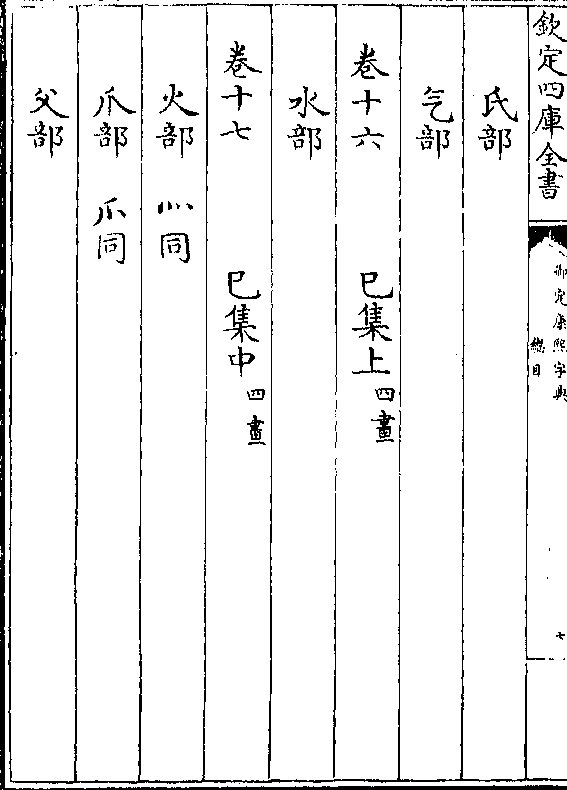 欽定四庫全書
御定康熙字典
總目
七
氏部
气部
卷十六 巳集上四畫
水部
卷十七 巳集中四畫
火部 灬同
爪部 爫同
父部